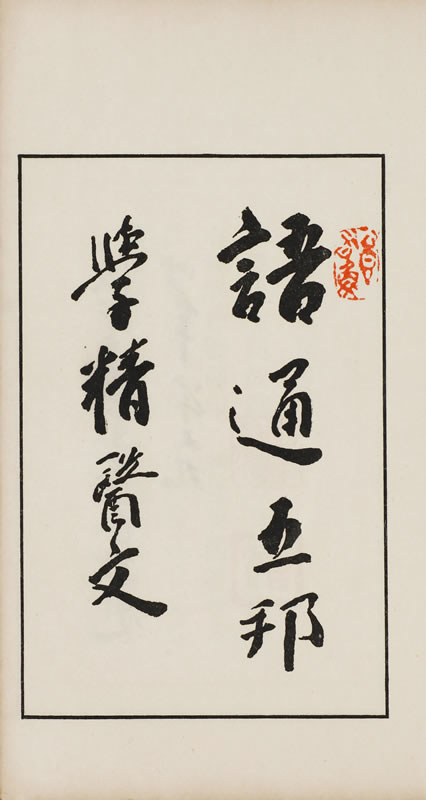 語通五邦
學精醫文